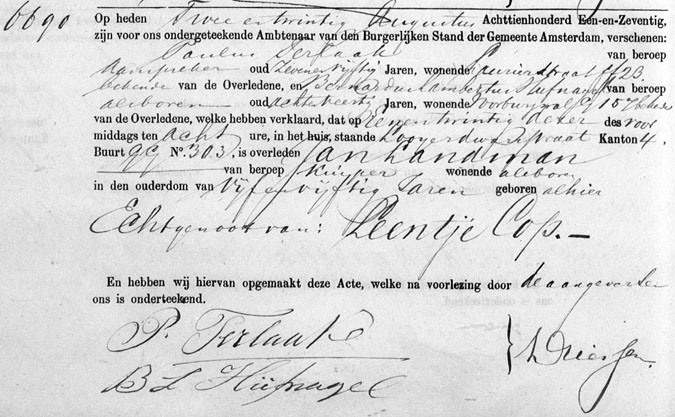 6690
Op heden Twee en twintig Augustus Achttienhonderd Een-en-Zeventig,
zijn voor ons ondergeteekende Ambtenaar van den Burgerlijken Stand der Gemeente Amsterdam, verschenen:
Paulus Terlaak van beroep
Aanspreker oud Zevenenvijftig Jaren, wonende Laurierstraat ff 23
bekende van de Overledene, en Bernardus Lambertus Hüfnagel van beroep
als boven oud achtenveertig Jaren, wonende Voorburgwal G 157 bekende
van de Overledene, welke hebben verklaard, dat op Eenentwintig dezer des voor
middags ten acht ure, in het huis, staande Looyersdwarsstraat Kanton 4.
Buurt GG N° 303. is overleden Jan Landman
van beroep Kuiper wonende als boven
in den ouderdom van Vijfenvijftig Jaren geboren alhier
Echtgenoot van: Leentje Cop. —
En hebben wij hiervan opgemaakt deze Acte, welke na voorlezing door de aangevers en
ons is onderteekend.
P. Terlaak
B L Hüfnagel